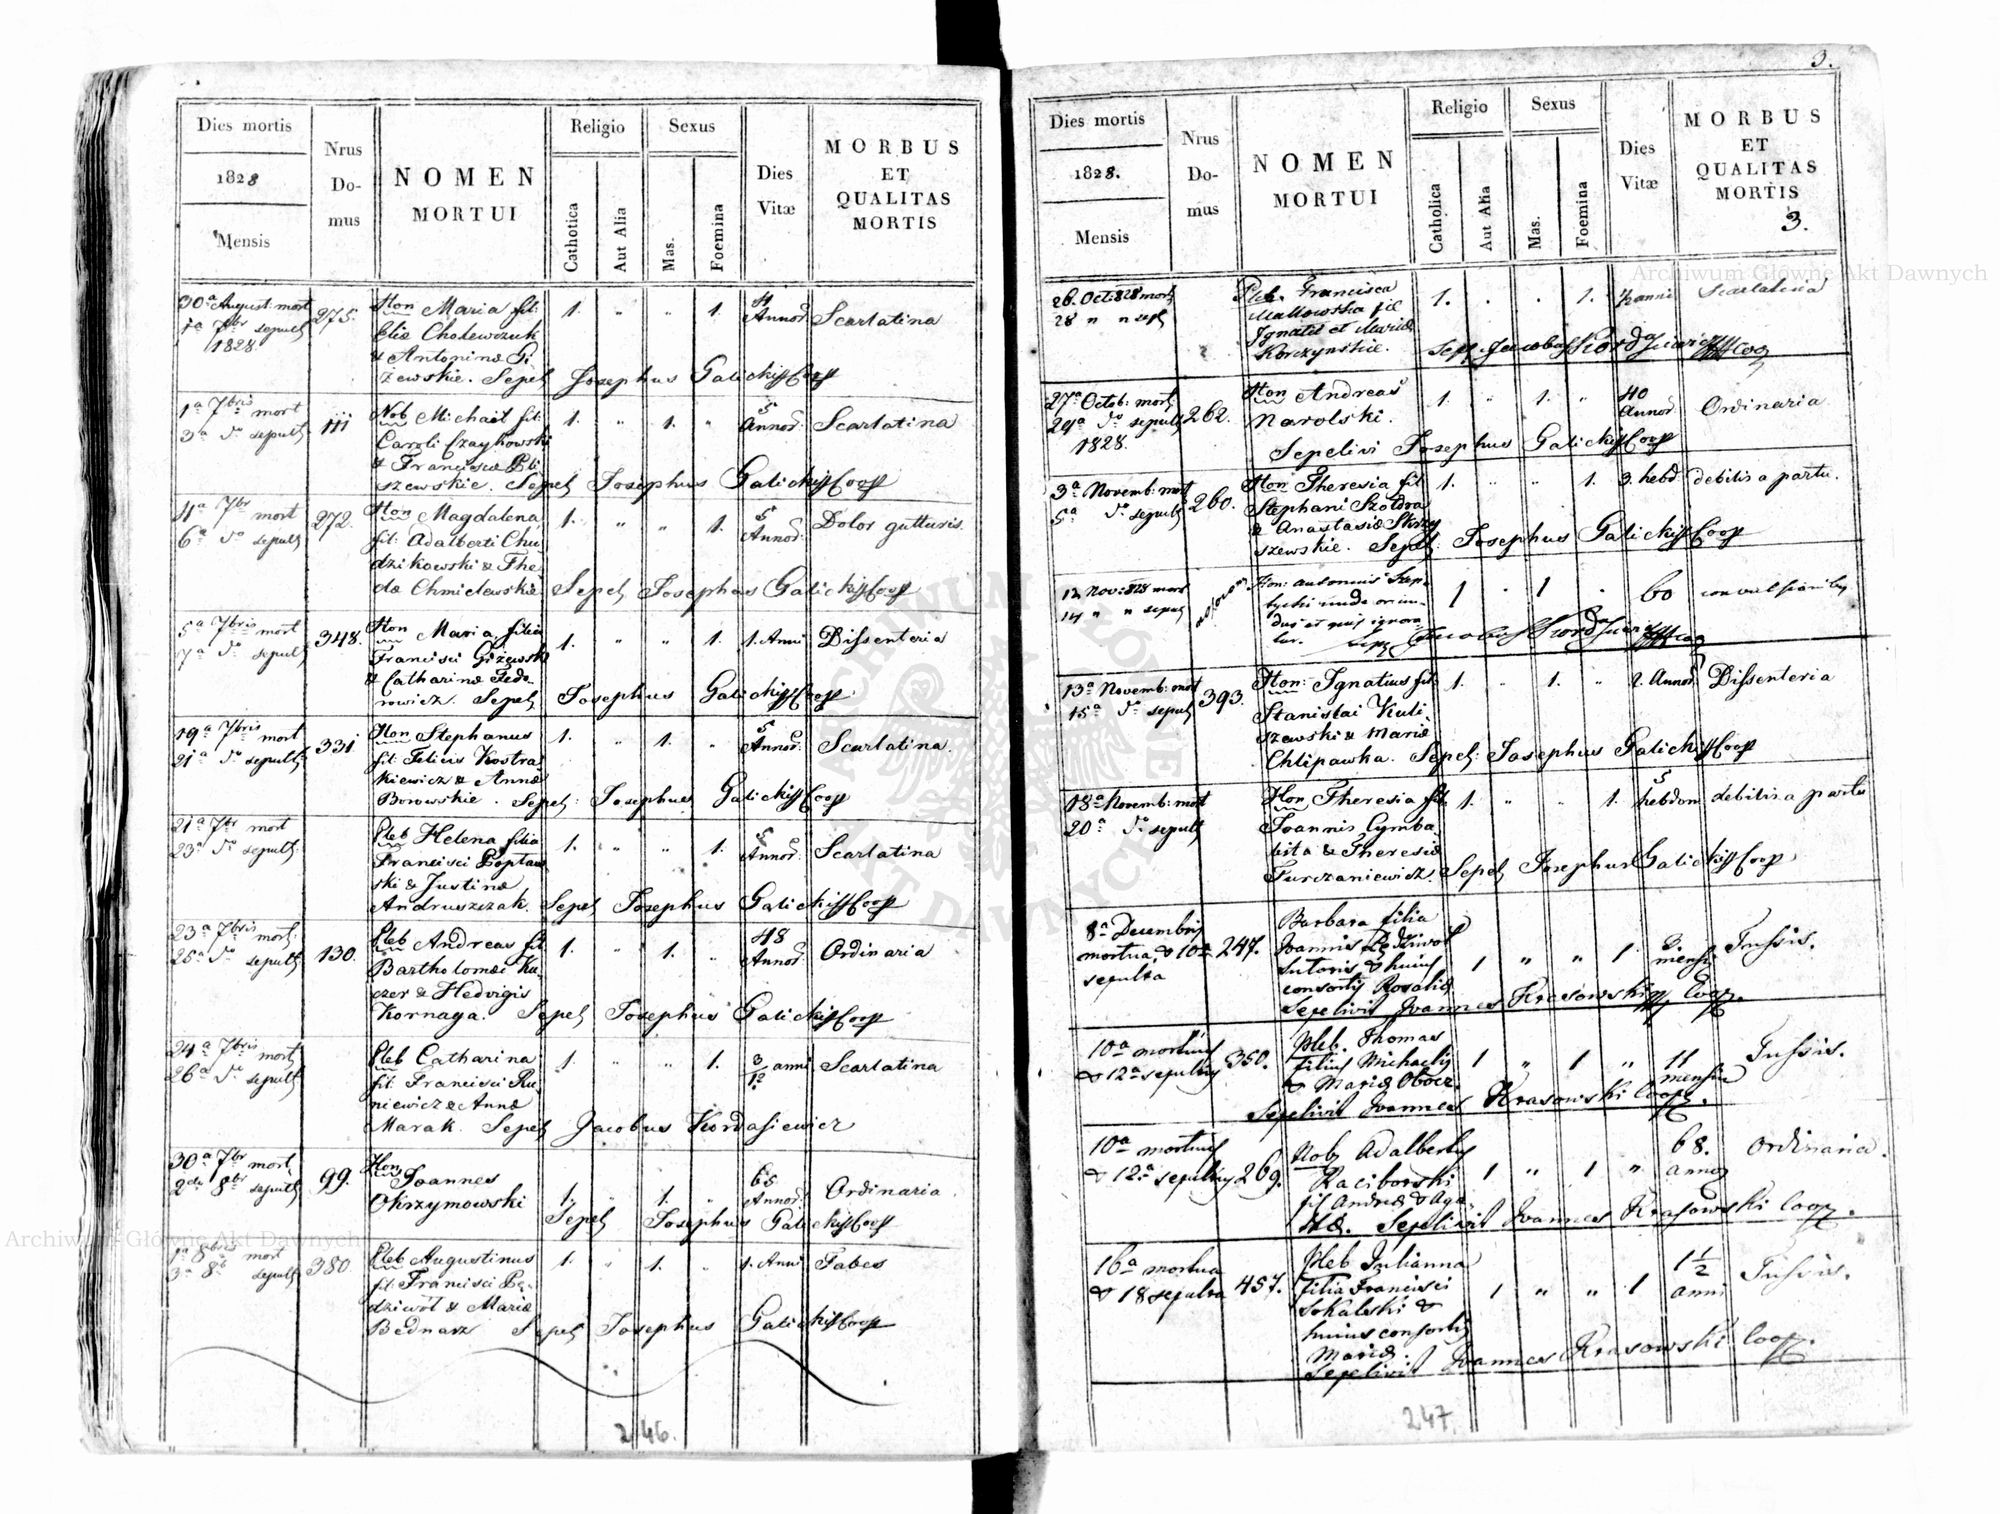 Dies mortis
1828
Mensis
Nrus
Do-
mus
NOMEN
MORTUI
Religio
Catholica
Aut Alia
Sexus
Mas.
Foemina
Dies
Vitæ
MORBUS
ET
QUALITAS
MORTIS
30a August: mort
1a 7br sepult
1828.
275.
Hon Maria fil:
Eliæ Cholewczuk
& Antoninæ Gi
żewskie. Sepel Josephus Galickiss Coop
1. " " 1.
4 Annor
Scarlatina
1a 7bris mort
3a do sepult
111
Nob Michael fil:
Caroli Czaykowski
& Franciscæ Pli
szewskie. Sepel Josephus Galickiss Coop
1. " 1. "
5 Annor
Scarlatina
4a 7br mort
6a do sepult
272.
Hon Magdalena
fil: Adalberti Chu
dzikowski & The
clæ Chmielewskie Sepel Josephus Galickiss Coop
1. " " 1.
5 Annor
Dolor gutturis.
5a 7bris mort
7a do sepult
348.
Hon Maria filia
Francisci Giżewski
& Catharinæ Fedo
rowicz. Sepel Josephus Galickiss Coop
1. " " 1.
1. Anni
Dissenteria
19a 7bris mort
21a do sepult
331
Hon Stephanus
fil: Felicis Kostra
kiewicz & Annæ
Borowskie. Sepel: Josephus Galickiss Coop
1. " 1. "
5 Annor
Scarlatina.
21a 7br mort
23a do sepult
Pleb Helena filia
Francisci Boptaw
ski & Justinæ
Andruszczak. Sepel Josephus Galickiss Coop
1. " " 1.
5 Annor:
Scarlatina
23a 7bris mort:
25a do sepult
130.
Pleb Andreas fil
Bartholomæi Ku
czer & Hedvigis
Kornaga. Sepel Josephus Galickiss Coop
1. " 1. "
48 Annor
Ordinaria
24a 7bris mort
26a do sepult
Pleb Catharina
fil: Francisci Ru
niewicz & Annæ
Marak. Sepel Jacobus Kordasiewicz
1. " " 1.
3/12 anni
Scarlatina
30a 7br mort
2da 8br sepult
99.
Hon Joannes
Okrzymowski
1. " 1. "
65 Annor:
Ordinaria.
Sepel Josephus Galickiss Coop
1a 8bris mort
3a 8b sepult
380.
Pleb Augustinus
fil: Francisci Pę
dziwot & Mariæ
Bednarz Sepel Josephus Galickiss Coop
1. " 1. "
1. Anni
Tabes
246.
3.
Dies mortis
1828.
Mensis
Nrus
Do-
mus
NOMEN
MORTUI
Religio
Catholica
Aut Alia
Sexus
Mas.
Foemina
Dies
Vitæ
MORBUS
ET
QUALITAS
MORTIS
3.
26. Oct: 828 mort
28 " " sepl
Pleb. Francisca
Malkowska fil
Ignatii et Mariæ
Korczynskie.
1. . . 1.
anni
Scarlatina
Sepp Jacobus Kordasiewicz Coop
27a Octob: mort
29a do sepult
1828.
262.
Hon Andreas
Narolski.
1. " 1. "
40 Annor
Ordinaria
Sepelivi Josephus Galickiss Coop
3a Novemb: mort
5a do sepult
260.
Hon Theresia fil
Stephani Szoldra
& Anastasiæ Skrzy
szewskie. Sepel: Josephus Galickiss Coop
1. " " 1.
3. hebd.
debilis a partu.
12 Nov: 828 mort
14 " " sepult
Hon: Antonius Step
tycki unde oriun
dus et quis ignora
tur.
1 . 1 .
60
convulsionibus
Sepp Jacobus Kordasiewicz Coop
13a Novemb: mort
15a do sepult
393.
Hon: Ignatius fil:
Stanislai Kuli
szewski & Mariæ
Chlipawka. Sepel: Josephus Galickiss Coop
1. " 1. "
2. Annor
Dissenteria
18a Novemb: mort
20a do sepult
Hon Theresia fil
Joannis Cymba
lista & Theresiæ
Turczaniewicz. Sepel Josephus Galickiss Coop
1. " " 1.
5 hebdom
debilis a partu
8a Decembris
mortua, & 10a
sepulta
247.
Barbara filia
Joannis Pędziwot
sutoris & huius
consortis Rosaliæ
Sepelivit Joannes Krasowski Coop.
1 " " 1
3. mensi
Tussis.
10a mortuus
& 12a sepultus
350.
Pleb. Thomas
filius Michaelis
& Mariæ Obocz.
Sepelivit Joannes Krasowski Coop.
1 " 1 "
11 mensiu
Tussis.
10a mortuus
& 12a sepultus
269.
Nob Adalbertus
Raciborski
fil Andreæ & Aga
thæ. Sepelivit Joannes Krasowski Coop.
1 " 1 "
68. annor
Ordinaria.
16a mortua
& 18 sepulta
457.
Pleb Julianna
filia Francisci
Sokalski &
huius consortis
Mariæ.
Sepelivit Joannes Krasowski Coop.
1 " " 1
1 1/2 anni
Tussis.
247.
Archiwum Główne Akt Dawnych
Archiwum Główne Akt Dawnych
ARCHIWUM GŁÓWNE AKT DAWNYCH